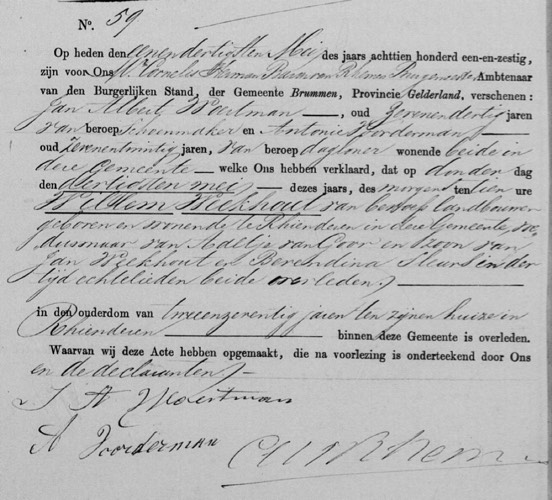 N°. 59
Op heden den eenendertigsten Mei des jaars achttien honderd een-en-zestig,
zijn voor Ons Mr. Cornelis Herman van Rhemen Burgemeester Ambtenaar
van den Burgerlijken Stand, der Gemeente Brummen, Provincie Gelderland, verschenen:
Jan Albert Woertman, oud zevenendertig jaren
van beroep schoenmaker en Antonie Voorderman,
oud zevenentwintig jaren, van beroep daglooner wonende beide in
deze Gemeente welke Ons hebben verklaard, dat op donder dag
den dertigsten mei dezes jaars, des morgens ten tien ure
Willem Weekhout van beroep landbouwer
geboren en wonende te Rhienderen in deze Gemeente, we-
duwnaar van Aaltje van Coor en zoon van
Jan Weekhout en Berendina in der
tijd echtelieden beide overleden,
in den ouderdom van tweeenzeventig jaren ten zijnen huize in
Rhienderen binnen deze Gemeente is overleden.
Waarvan wij deze Acte hebben opgemaakt, die na voorlezing is onderteekend door Ons
en de declaranten,
J A Woertman
A Voorderman
CHvRhemen